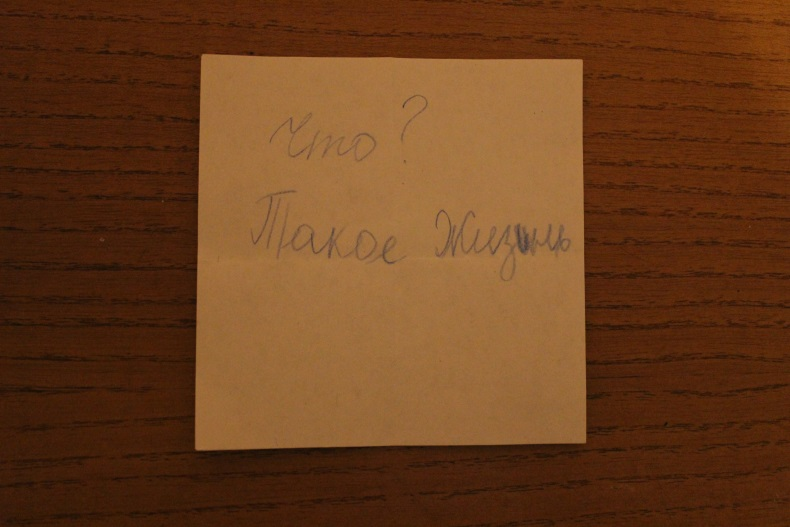 Что?
Такое Жизнь